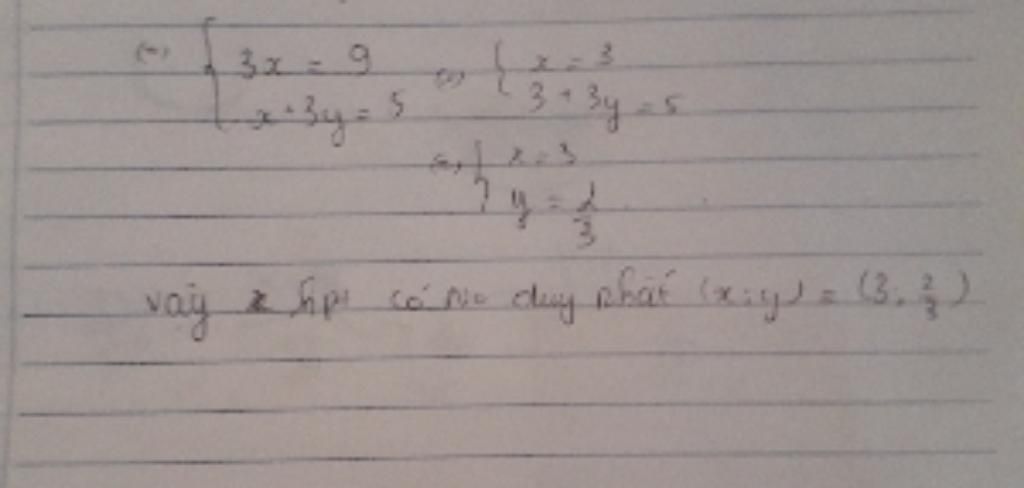 (=) { 3x = 9
x + 3y = 5 (=) { x = 3
3 + 3y = 5
(=) { x = 3
y = 2/3
vậy hpt có no duy nhất (x; y) = (3; 2/3)